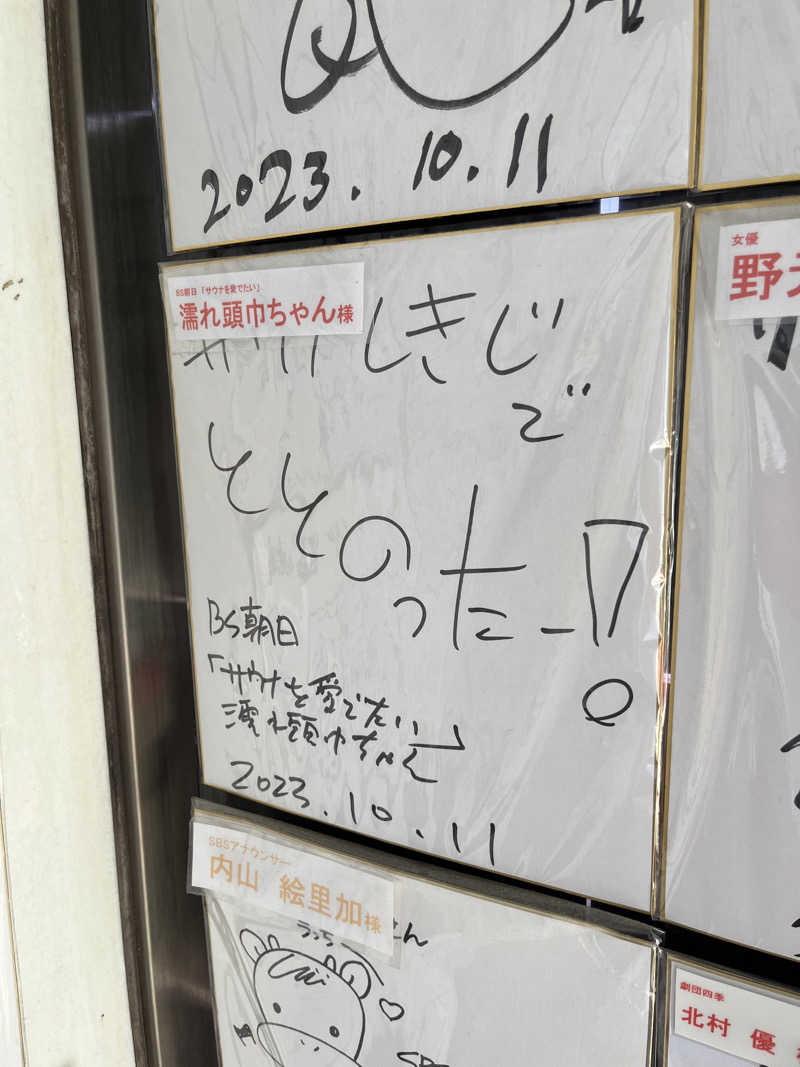 2023.10.11
BS朝日「サウナを愛でたい」
濡れ頭巾ちゃん様
しきじ
で
ととのったー!
BS朝日
「サウナを愛でたい」
濡れ頭巾ちゃん
2023.10.11
女優
野
SBSアナウンサー
内山 絵里加様
うっち
さん
劇団四季
北村 優